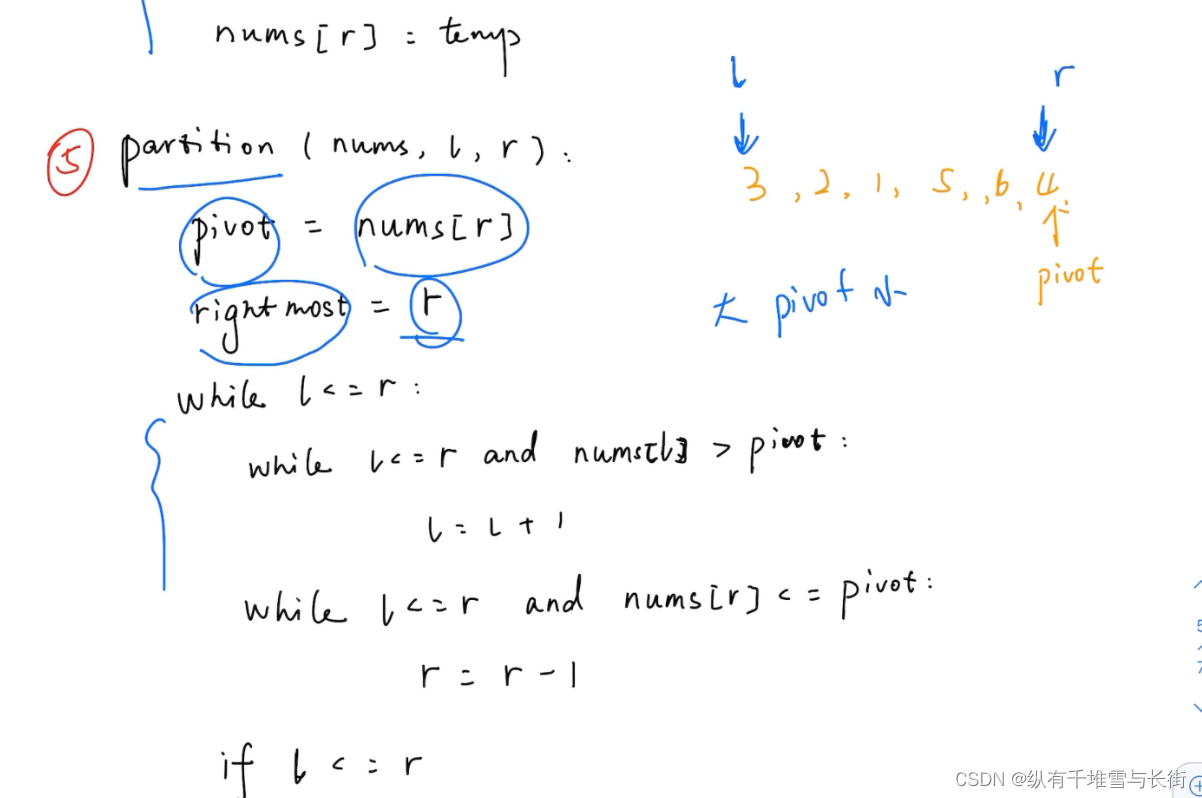 nums[r] = temp
⑤ partition (nums, l, r):
pivot = nums[r]
rightmost = r
while l<=r:
while l<=r and nums[l] > pivot:
l = l + 1
while l<=r and nums[r] <= pivot:
r = r - 1
if l <= r
l r
3, 2, 1, 5, 6, 4
pivot
大 pivot 小
CSDN @纵有千堆雪与长街